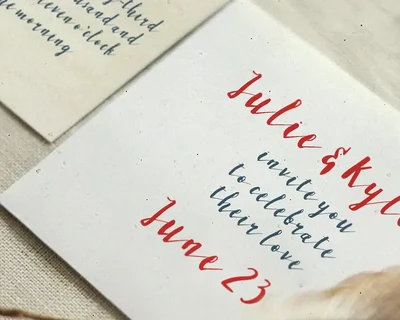 third
sand and
even o'clock
morning
Julie & Kyle
invite you
to celebrate
their love
June 23